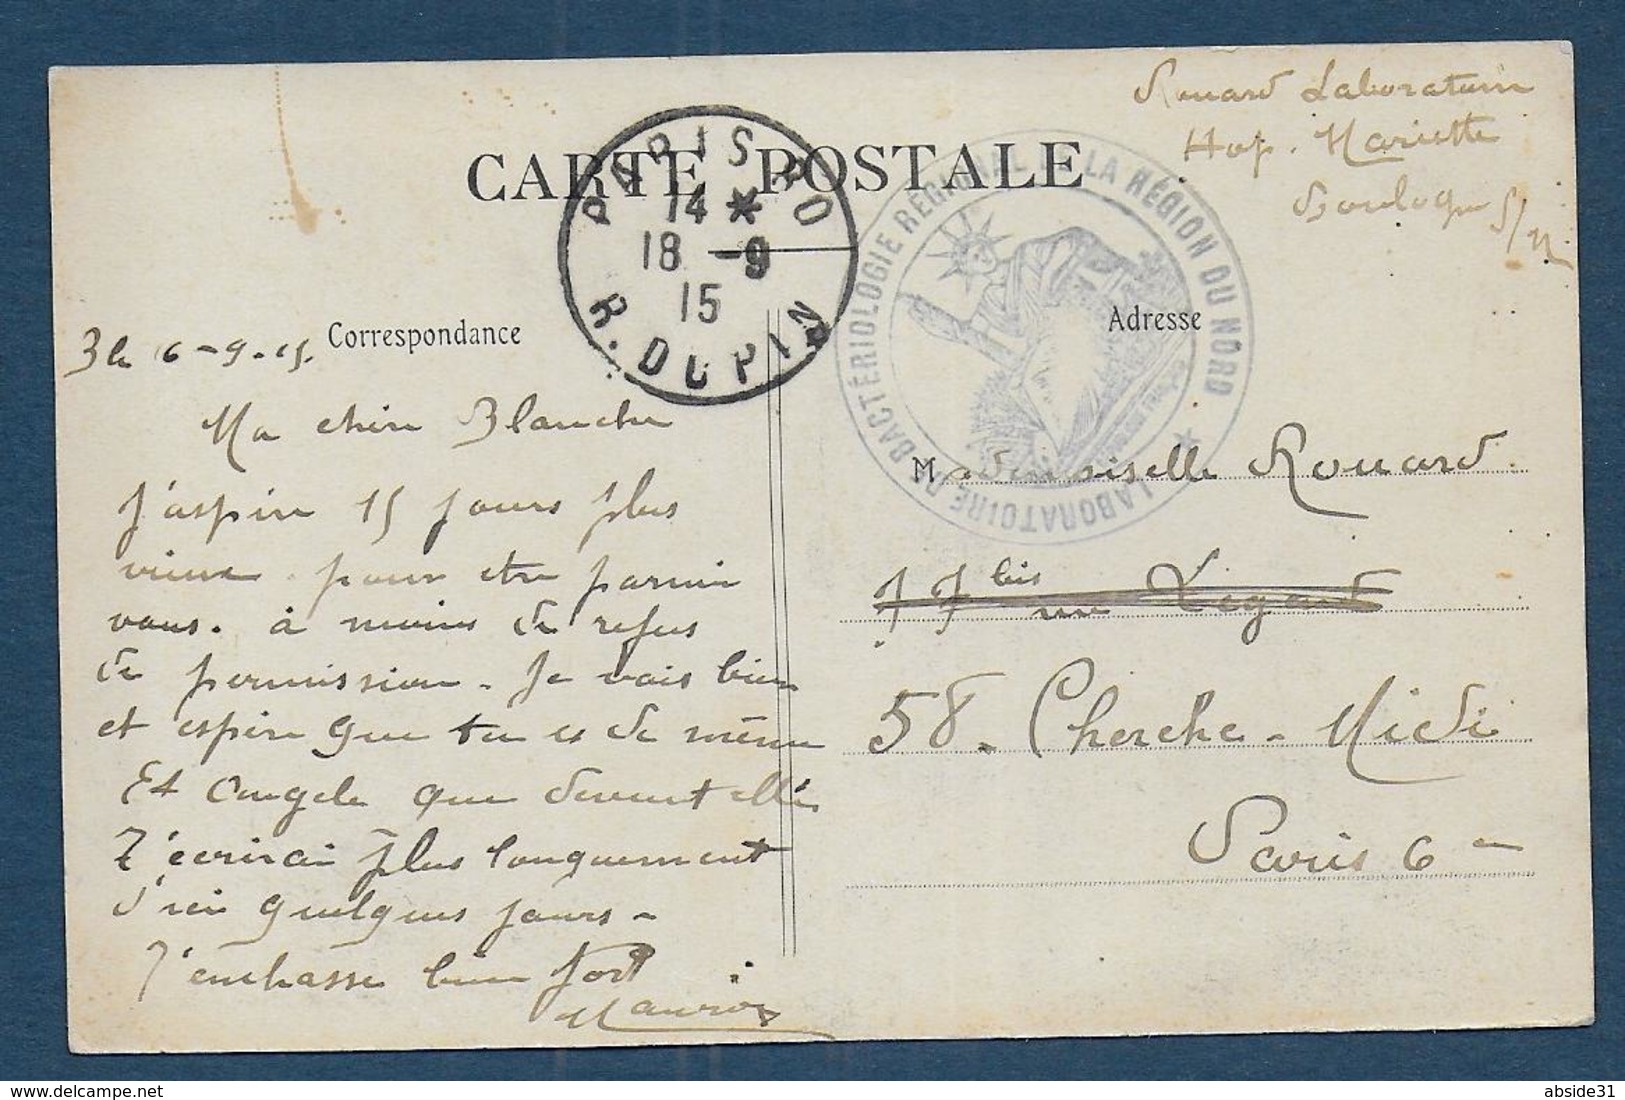 Rouard Laboratoire
Hop. Mariette
Boulogne S/M
CARTE POSTALE
PARIS 20
14 *
18 -9
15
R. DUPIN
LABORATOIRE DE BACTÉRIOLOGIE RÉGIONAL DE LA RÉGION DU NORD
Correspondance
Adresse
Ble 16-9-15.
Ma chère Blanche
J'aspire 15 jours plus
vieux pour être parmi
vous. à moins de refus
de permission. Je vais bien
et espère que tu es de même
Et Angèle que devient elle
T'écrirai plus longuement
d'ici quelques jours -
T'embrasse bien fort
Maurice
Mademoiselle Rouard.
77 bis rue Legend
58. Cherche-Midi
Paris 6e
abside31